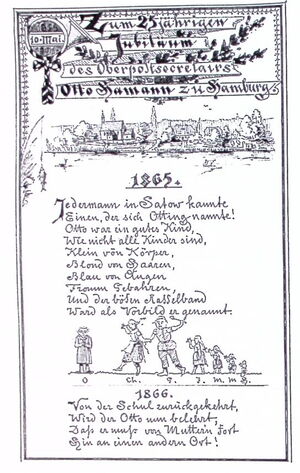 10. Mai.
Zum 25jährigen
Jubiläum
des Oberpostsecretairs
Otto Hamann zu Hamburg.
1865.
Jedermann in Satow kannte
Einen, der sich Otting nannte!
Otto war ein gutes Kind,
Wie nicht alle Kinder sind,
Klein von Körper,
Blond von Haaren,
Blau von Augen
Fromm Gebahren,
Und der bösen Rasselband
Ward als Vorbild er genannt.
O Ch. T. J. M. M. H.
1866.
Von der Schul zurückgekehrt,
Wird der Otto nun belehrt,
Daß er muss von Muttern fort
Hin an einen andern Ort!